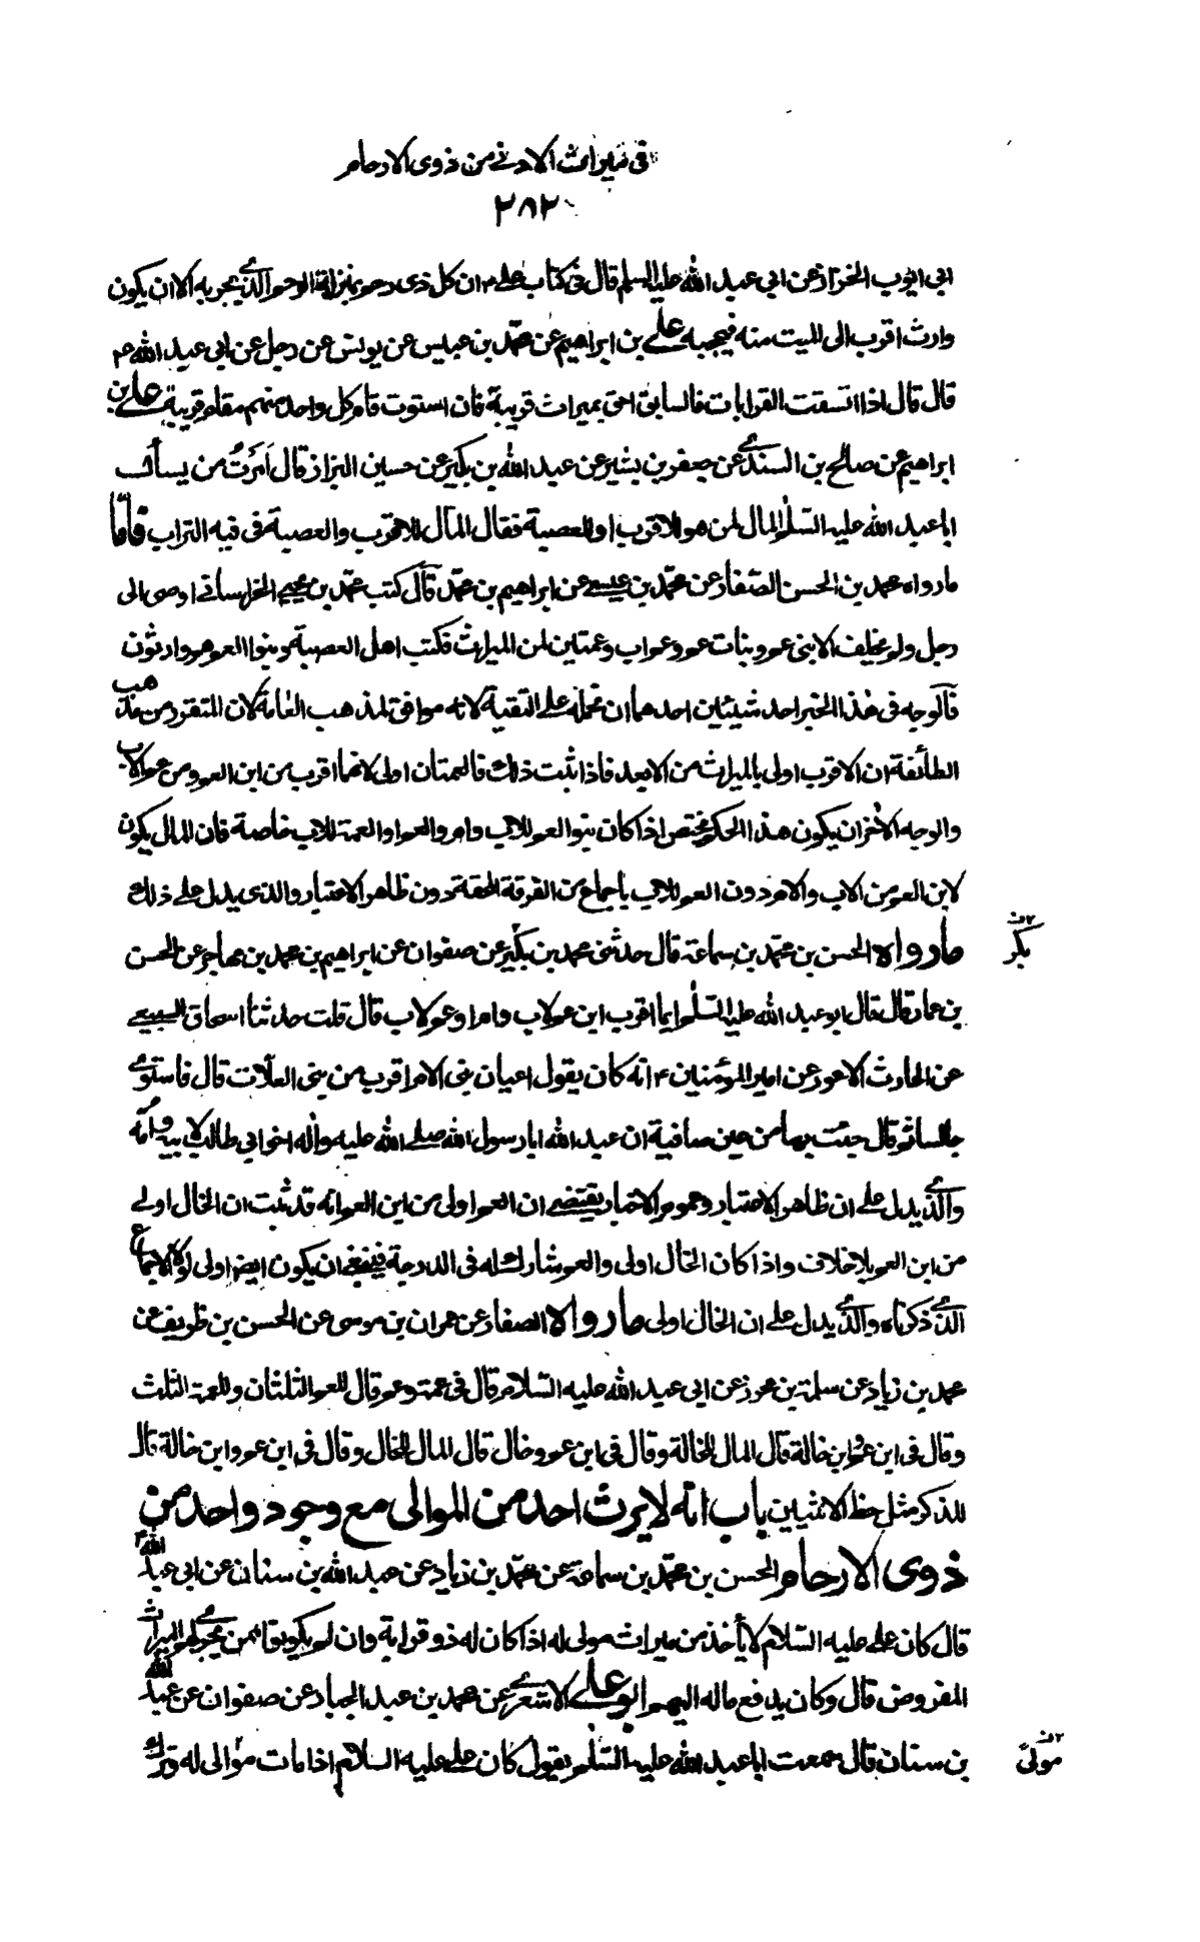 فی میراث الادنی من ذوی الارحام
۲۸۲
ابی ایوب الخزاز عن ابی عبد الله علیه السلم قال فی کتاب علی ان کل ذی رحم بمنزلة الرحم الذی یجر به الا ان یکون
وارث اقرب الی المیت منه فیحجبه علی بن ابراهیم عن محمد بن عیسی عن یونس عن رجل عن ابی عبد الله ع
قال قال اذا اتسقت القرابات فالسابق احق بمیراث قریبه فان استوت قام کل واحد منهم مقام قریبه علی بن
ابراهیم عن صالح بن السندی عن جعفر بن بشیر عن عبد الله بن بکیر عن حسین البزاز قال اَمَرتُ من یسأل
ابا عبد الله علیه السلم المال لمن هو للاقرب او للعصبة فقال المال للاقرب والعصبة فی فیه التراب فاما
ما رواه محمد بن الحسن الصفار عن محمد بن عیسی عن ابراهیم بن محمد قال کتب محمد بن یحیی الخراسانی اوصی الی
رجل ولم یخلف الا بنی عم وبنات عم وعم اب وعمتین لمن المیراث فکتب اهل العصبة وبنو العم هم وارثون
فالوجه فی هذا الخبر احد شیئین احدهما ان نحمله علی التقیة لانه موافق لمذهب العامة لان المتقرر من مذهب
الطائفة ان الاقرب اولی بالمیراث من الابعد فاذا ثبت ذلک فالعمتان اولی لانهما اقرب من ابن العم ومن عم الاب
والوجه الآخر ان یکون هذا الحکم مختص اذا کان بنو العم للاب وام والعم او العمة للاب خاصة فان المال یکون
لابن العم من الاب والام دون العم للاب باجماع من الفرقة المحقة دون ظاهر الاعتبار والذی یدل علی ذلک
ما رواه الحسن بن محمد بن سماعة قال حدثنی محمد بن بکیر عن صفوان عن ابراهیم بن محمد بن مهاجر عن الحسن
بکر
بن عمار قال قال ابو عبد الله علیه السلم ایما اقرب ابن عم لاب وام او عم لاب قال قلت حدثنا اسحاق السبیعی
عن الحارث الاعور عن امیر المؤمنین ع انه کان یقول اعیان بنی الام اقرب من بنی العلات قال فاستوی
جالسا ثم قال جئت بها من عین صافیة ان عبد الله ابا رسول الله صلی الله علیه وآله اخو ابی طالب لابیه وامه
والذی یدل علی ان ظاهر الاعتبار وعموم الاخبار یقتضی ان العم اولی من ابن العم انه قد ثبت ان الخال اولی
من ابن العم بلا خلاف واذا کان الخال اولی والعم شارک له فی الدرجة فینبغی ان یکون ایضا اولی لولا الاجماع
الذی ذکرناه والذی یدل علی ان الخال اولی ما رواه الصفار عن عمران بن موسی عن الحسن بن ظریف عن
محمد بن زیاد عن سلمة بن محرز عن ابی عبد الله علیه السلام قال فی عمة وعم قال للعم الثلثان وللعمة الثلث
وقال فی ابن عم وابن خالة قال المال للخالة وقال فی ابن عم وخال قال المال للخال وقال فی ابن عم وابن خالة قال
للذکر مثل حظ الانثیین باب انه لا یرث احد من الموالی مع وجود واحد من
ذوی الارحام الحسن بن محمد بن سماعة عن محمد بن زیاد عن عبد الله بن سنان عن ابی عبد الله ع
قال کان علی علیه السلام لا یأخذ من میراث مولی له اذا کان له ذو قرابة وان لم یکونوا ممن یجری لهم المیراث
المفروض قال وکان یدفع ماله الیهم ابو علی الاشعری عن محمد بن عبد الجبار عن صفوان عن عبد الله
بن سنان قال سمعت ابا عبد الله علیه السلم یقول کان علی علیه السلام اذا مات مولی له وترک
مولی